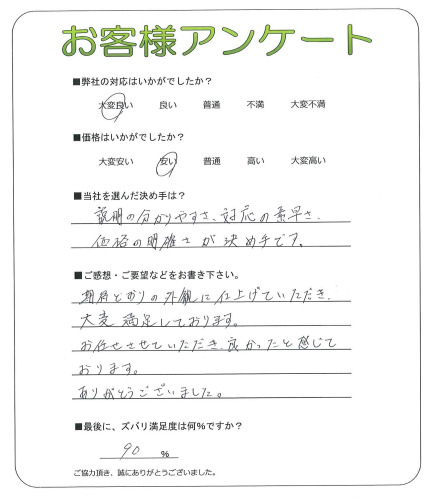 お客様アンケート
■弊社の対応はいかがでしたか？
大変良い 良い 普通 不満 大変不満
■価格はいかがでしたか？
大変安い 安い 普通 高い 大変高い
■当社を選んだ決め手は？
説明の分かりやすさ、対応の素早さ、
価格の明確さが決め手です。
■ご感想・ご要望などをお書き下さい。
期待どおりの外観に仕上げていただき、
大変満足しております。
お任せさせていただき、良かったと感じて
おります。
ありがとうございました。
■最後に、ズバリ満足度は何%ですか？
90 %
ご協力頂き、誠にありがとうございました。